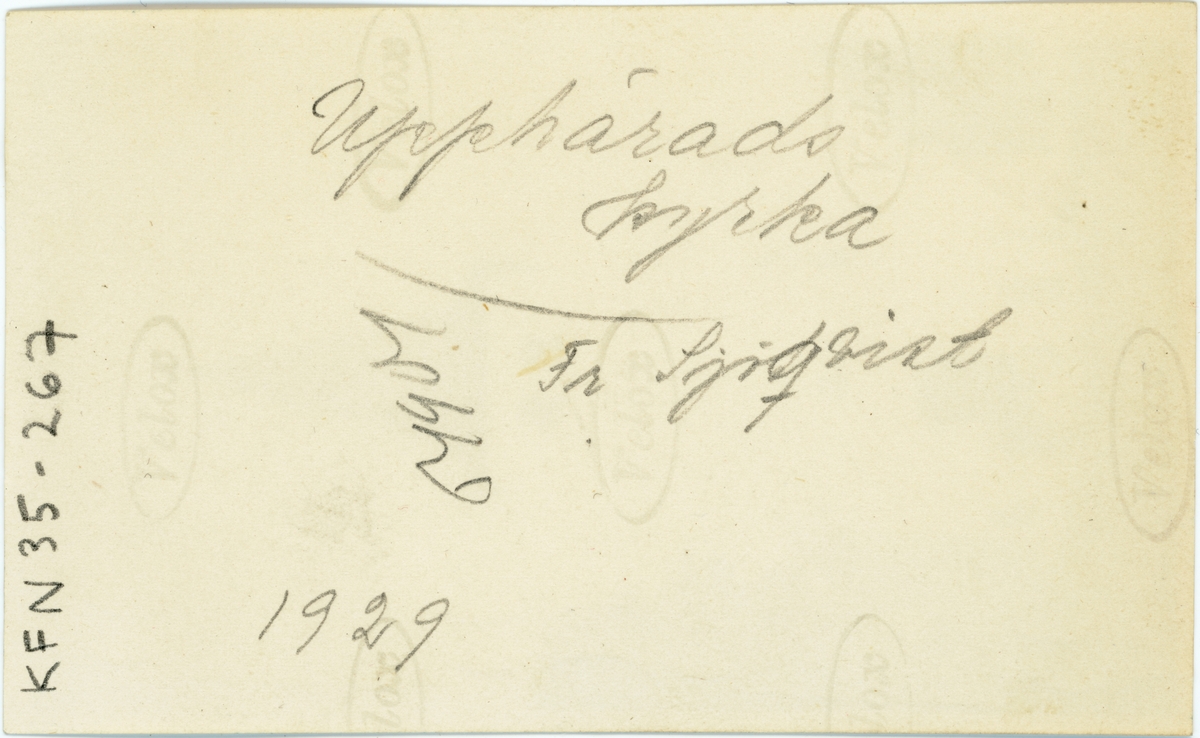 Upphärads
kyrka
Fr Sjöqvist
1929
KFN 35-267
Velox
Velox
Velox
Velox
Velox